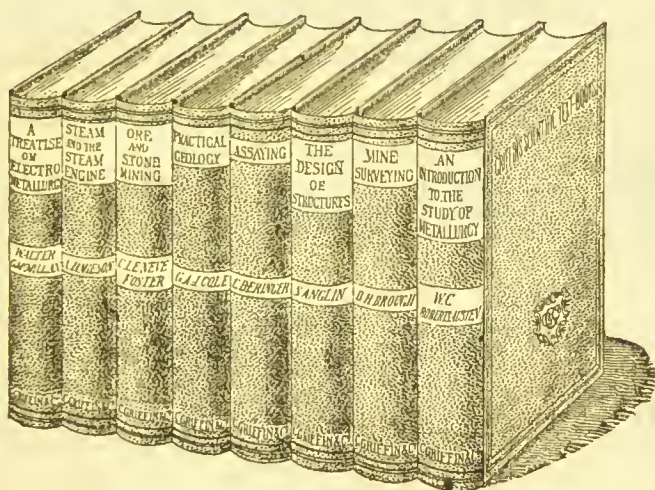 A
TREATISE
ON
ELECTRO
METALLURGY
WALTER
C. GRIFFIN & Co.
STEAM
AND THE
STEAM
ENGINE
C. GRIFFIN & Co.
ORE
AND
STONE
MINING
C. LE NEVE
FOSTER
C. GRIFFIN & Co.
PRACTICAL
GEOLOGY
G.A.J. COLE
C. GRIFFIN & Co.
ASSAYING
C. BERINGER
C. GRIFFIN & Co.
THE
DESIGN
OF
STRUCTURES
S. ANGLIN
C. GRIFFIN & Co.
MINE
SURVEYING
B H BROUGH
C. GRIFFIN & Co.
AN
INTRODUCTION
TO THE
STUDY OF
METALLURGY
W.C
ROBERTS AUSTEN
C. GRIFFIN & Co.
GRIFFINS SCIENTIFIC TEXT-BOOKS